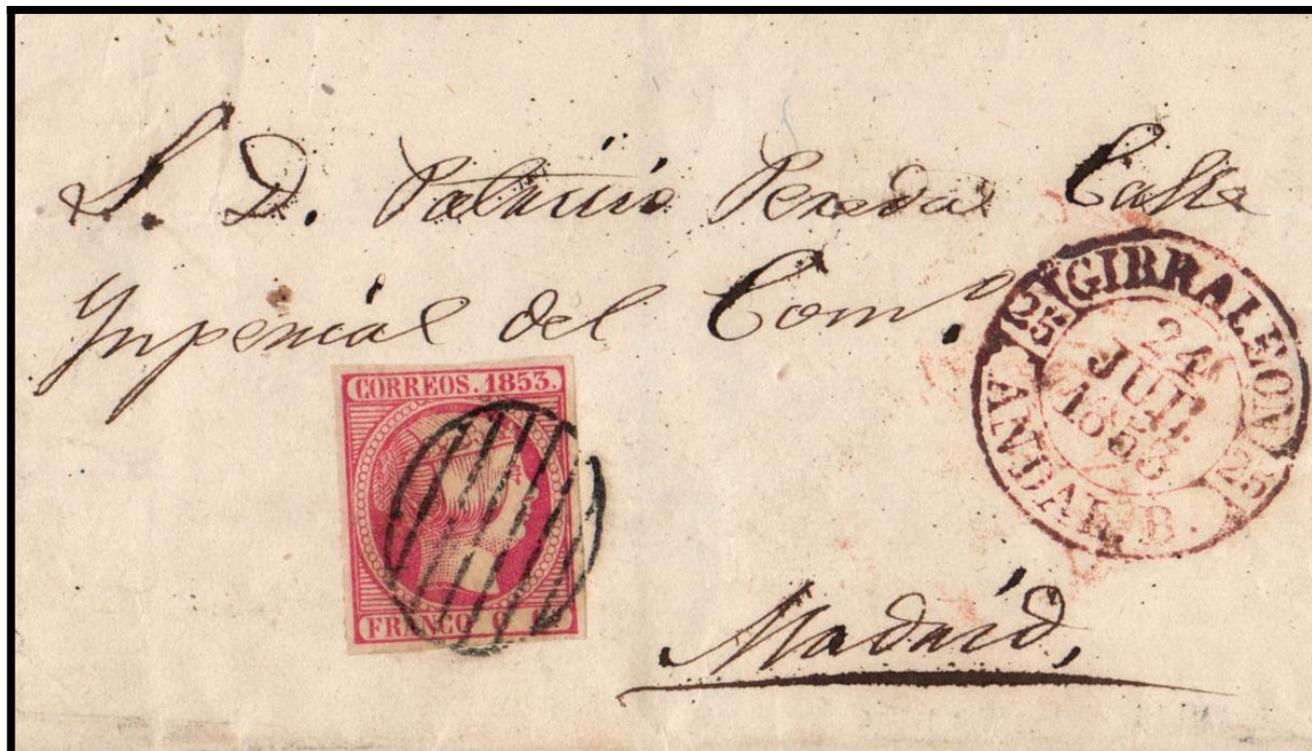 S. D. Patricio Pereda Calle
Imperial del Com.º
CORREOS. 1853.
FRANCO 6
GIBRALEON
24
JUL.
1853
ANDAL. B.
Madrid,